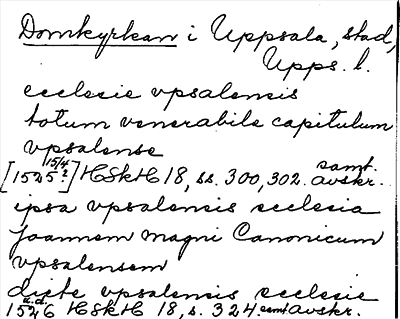 Domkyrkan i Uppsala, stad,
Upps. l.
ecclesie vpsalensis
totum venerabile capitulum
vpsalense
[15/4 1525?] HSkH 18, ss. 300, 302. samt. avskr.
ipsa vpsalensis ecclesia
Joannem magni Canonicum
vpsalensem
dicte vpsalensis ecclesie
1526 u.d. HSkH 18, s. 324 samt avskr.